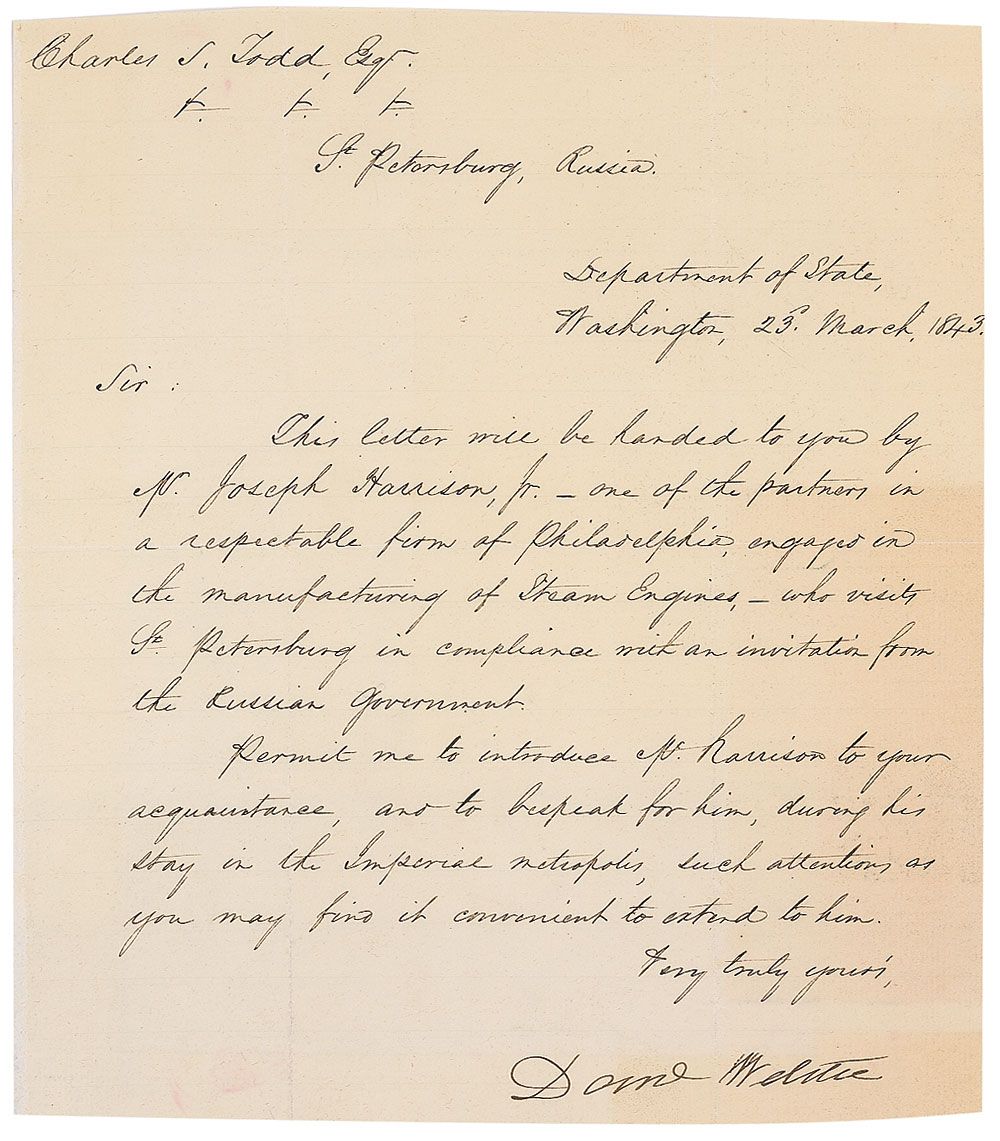 Charles S. Todd, Esqr.
&. &. &.
St. Petersburg, Russia.
Department of State,
Washington, 23d. March, 1843.
Sir :
This letter will be handed to you by
Mr. Joseph Harrison, Jr. – one of the partners in
a respectable firm of Philadelphia, engaged in
the manufacturing of Steam Engines, – who visits
St. Petersburg in compliance with an invitation from
the Russian Government.
Permit me to introduce Mr. Harrison to your
acquaintance, and to bespeak for him, during his
stay in the Imperial metropolis, such attentions as
you may find it convenient to extend to him.
Very truly yours,
Danl Webster